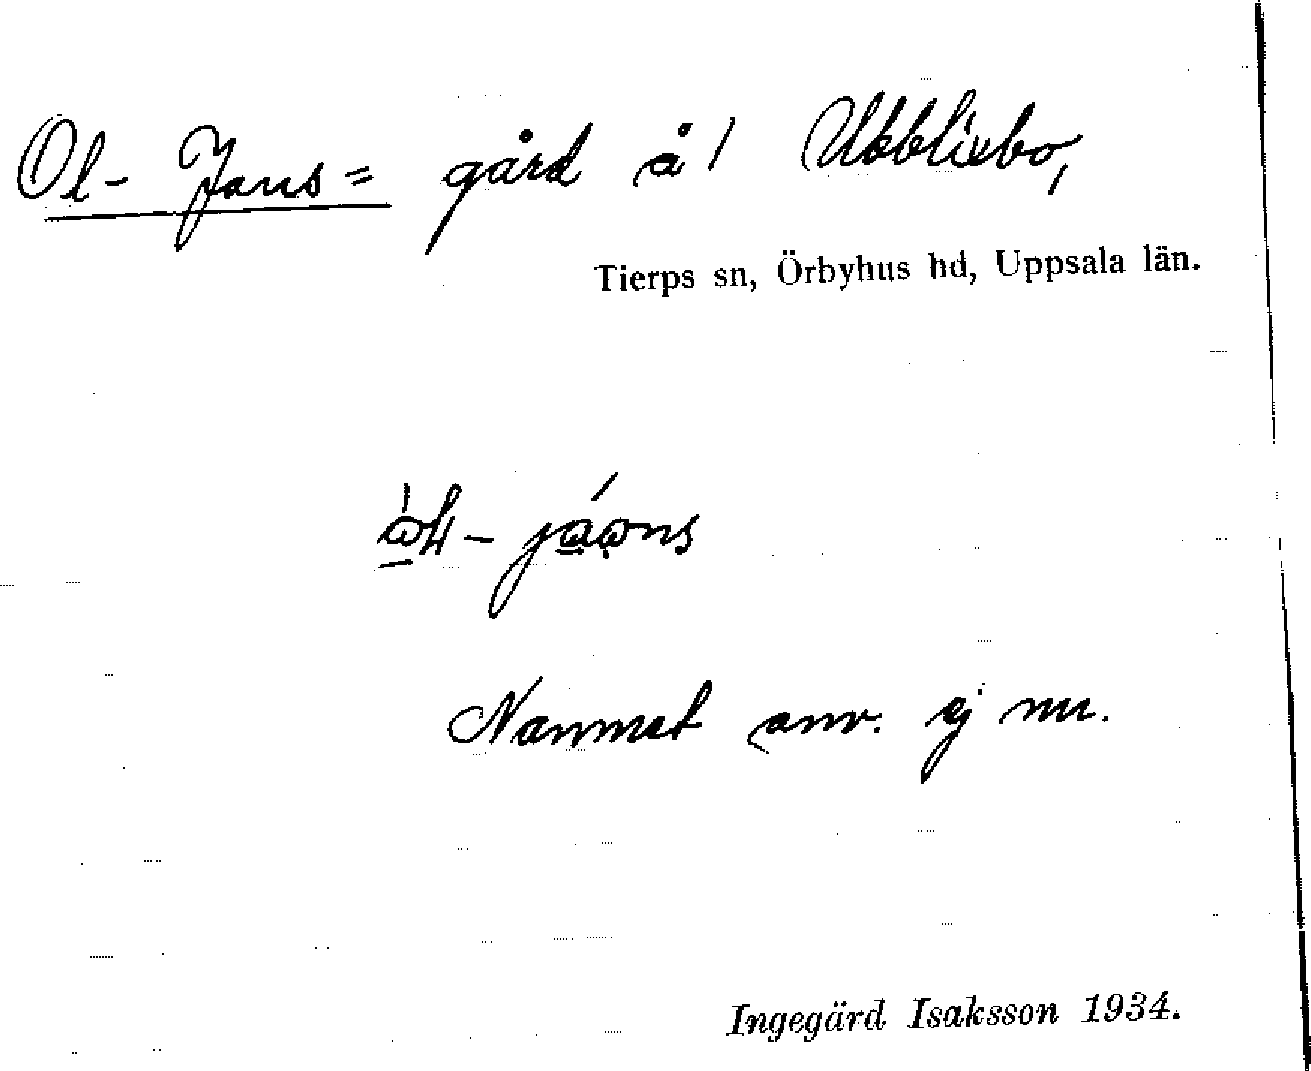 Ol- Jans= gård å 1 Ubblixbo,
Tierps sn, Örbyhus hd, Uppsala län.
Namnet anv. ej nu.
Ingegärd Isaksson 1934.